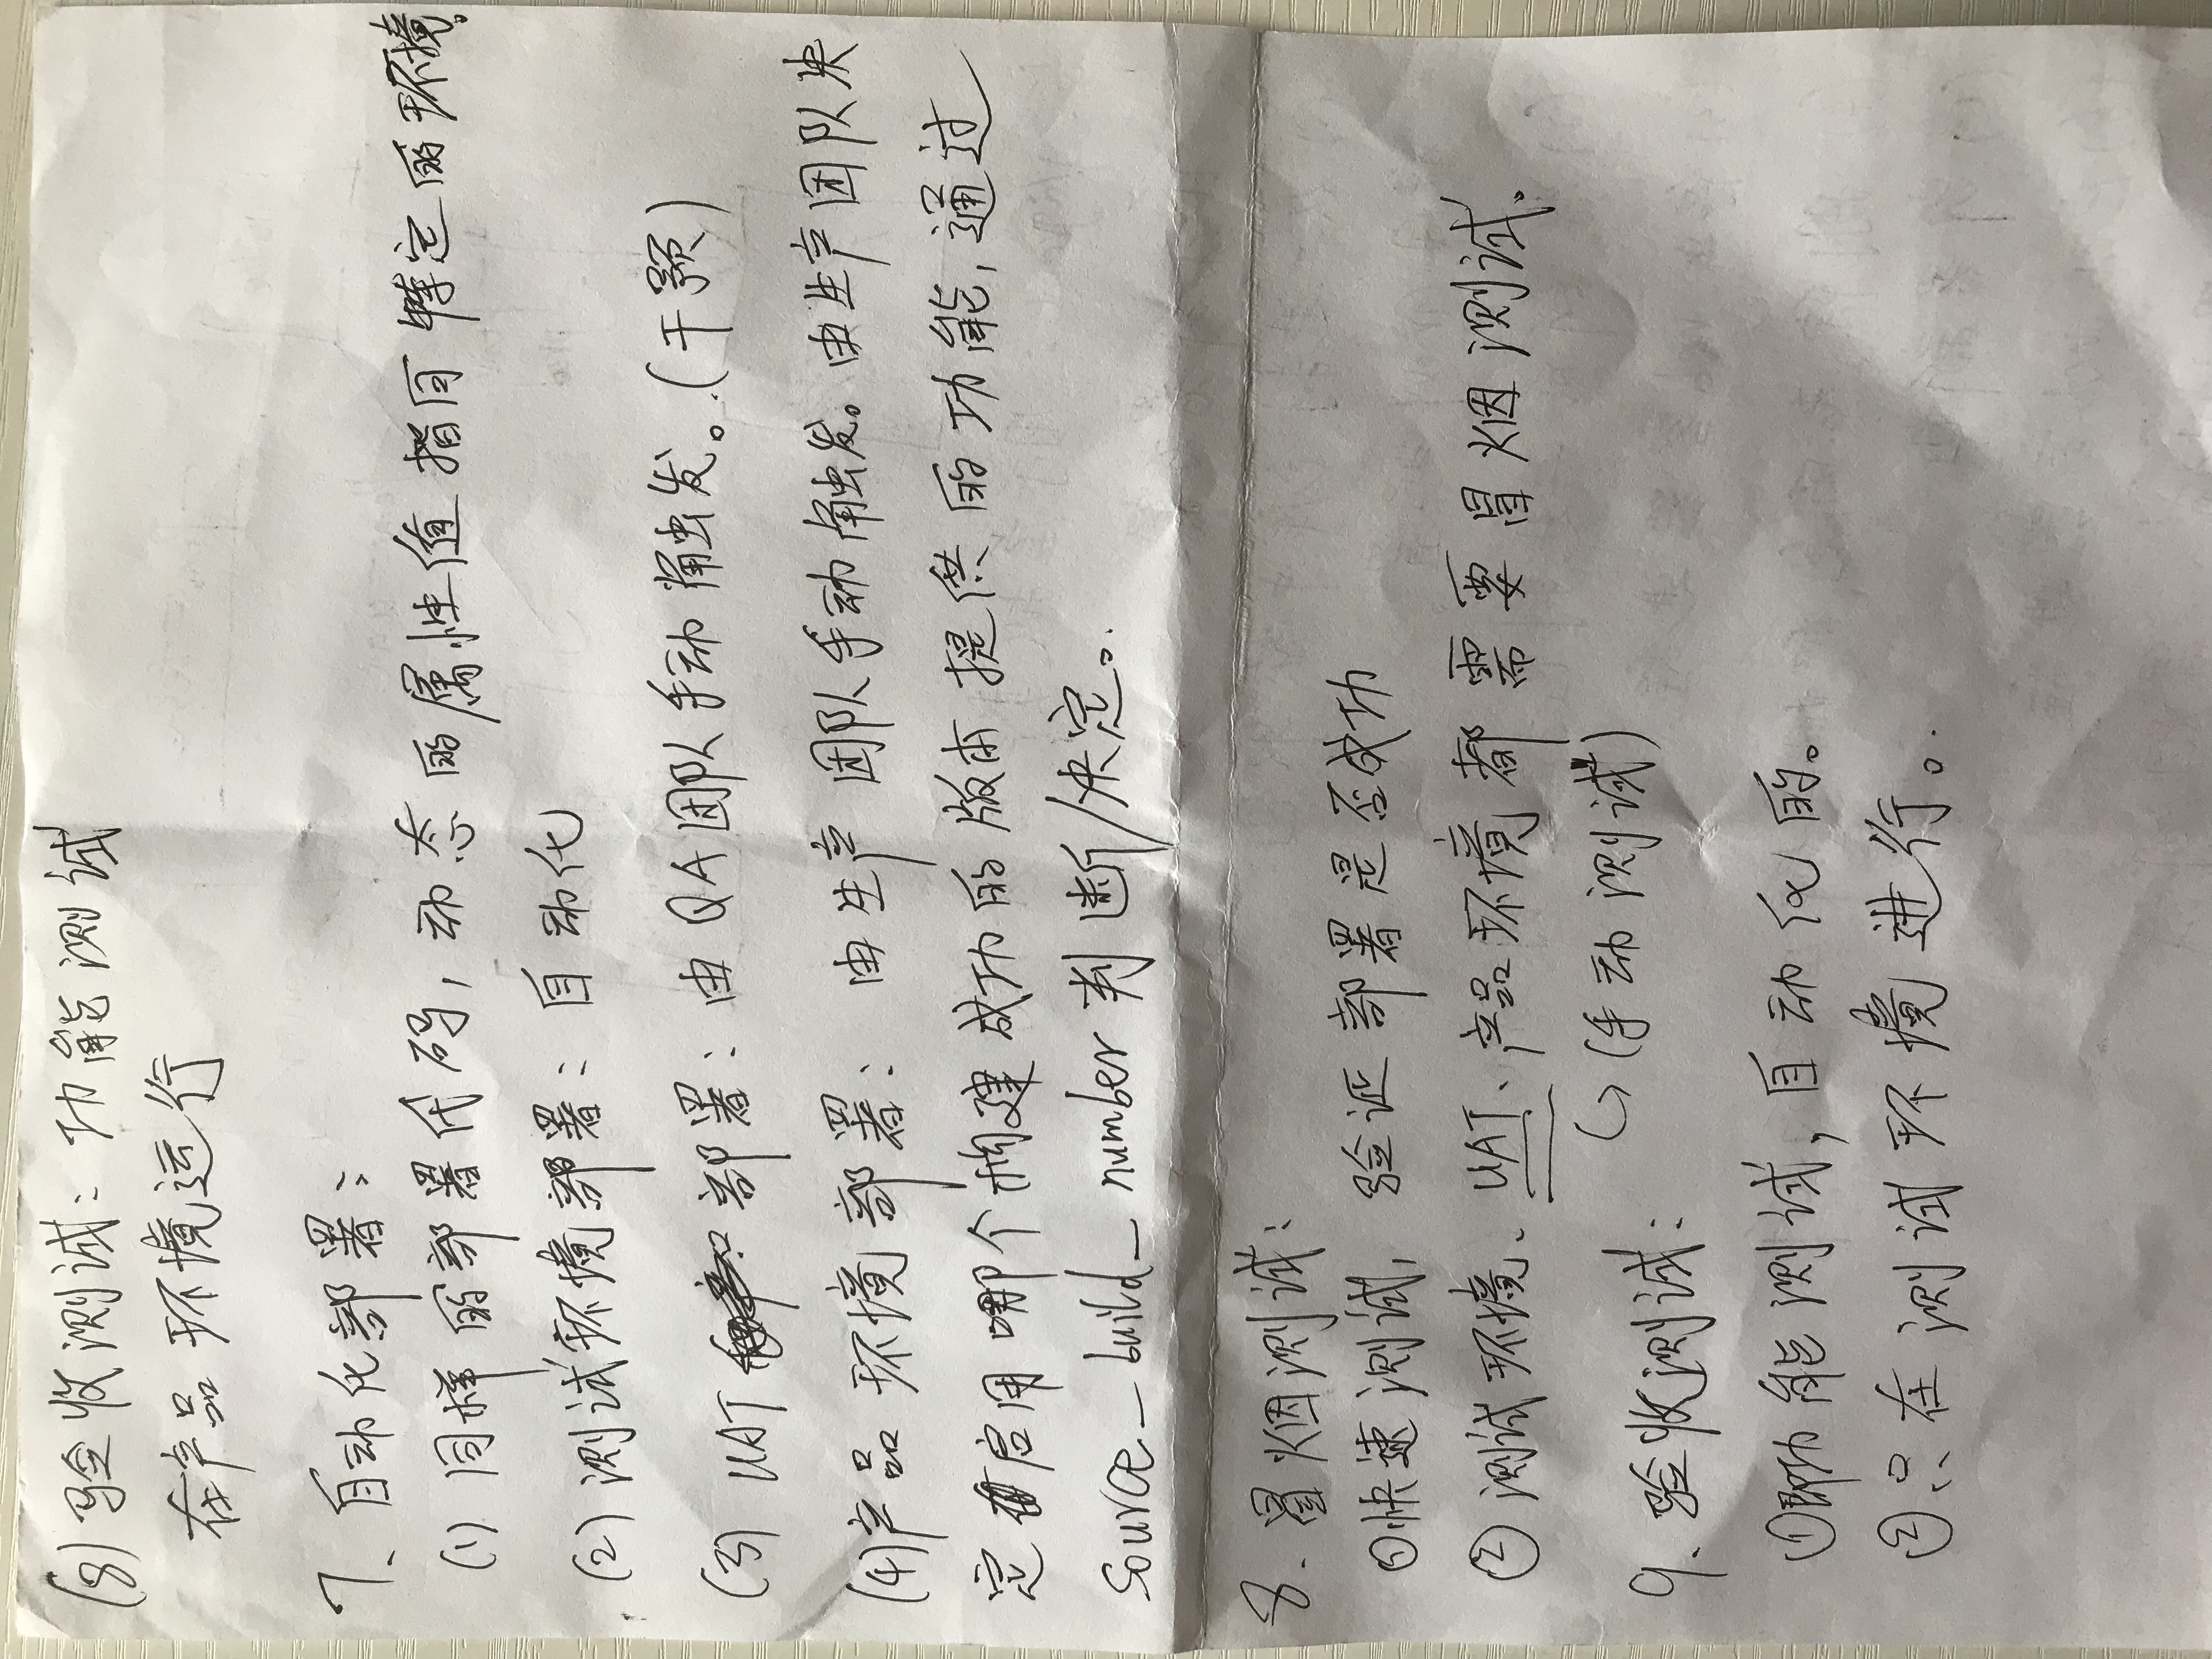 (8) 验收测试: 功能测试
在产品环境运行
7、自动化部署:
(1) 同样的部署代码, 动态的属性值指向特定的环境。
(2) 测试环境部署: 自动化
(3) UAT 部署: 由QA团队手动触发。(干预)
(4) 产品环境部署: 由生产团队手动触发。由生产团队决
定启用哪个构建成功的版本提供的功能, 通过
source_build_number 判断/决定。
8、冒烟测试:
①快速测试, 验证部署是否成功
② 测试环境、UAT、产品环境都需要冒烟测试。
(手动测试)
9、验收测试:
①即功能测试, 自动化的。
②只在测试环境进行。